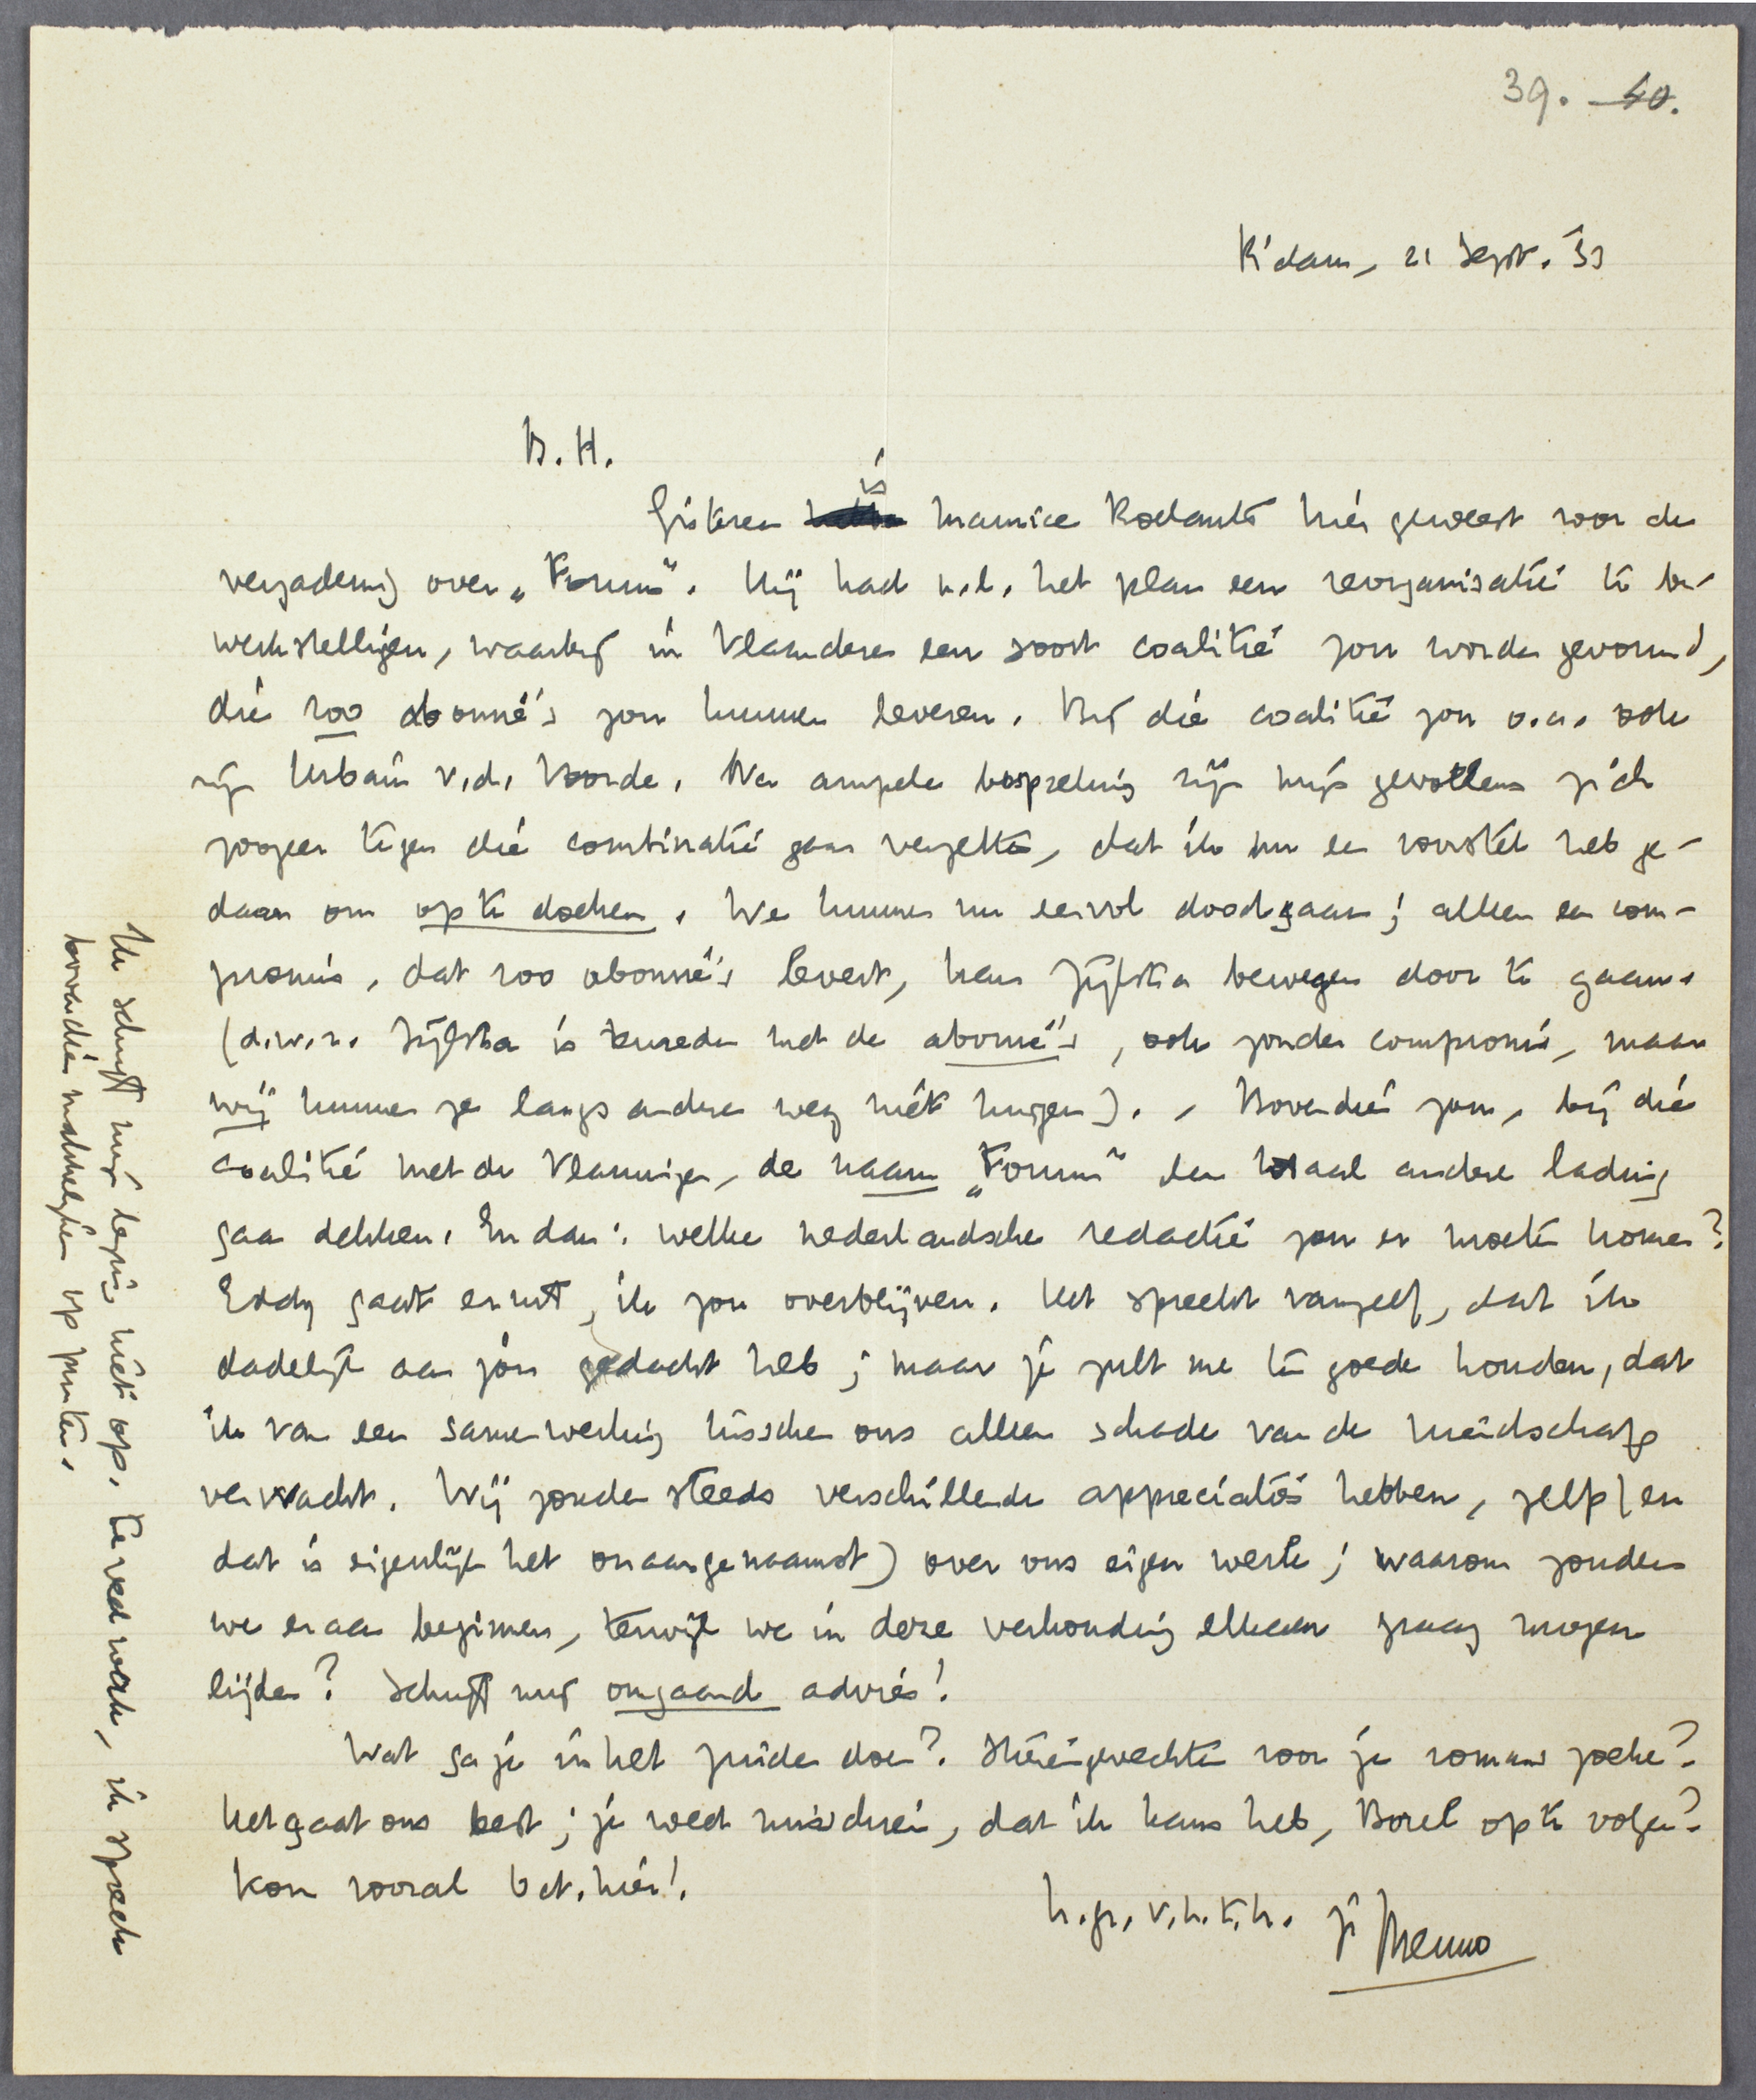 39. 40.
R'dam, 21 Sept. '33
B. H.
Gisteren is Maurice Roelants hier geweest voor de
vergadering over „Forum". Hij had n.l. het plan een reorganisatie te be-
werkstelligen, waarbij in Vlaanderen een soort coalitie zou worden gevormd,
die 200 abonné's zou kunnen leveren. Bij die coalitie zou o.a. ook
zijn Urbain v.d. Voorde. Na ampele bespreking zijn mijn gevoelens zich
zoozeer tegen die combinatie gaan verzetten, dat ik nu een voorstel heb ge-
daan om op te doeken. We kunnen nu eervol doodgaan; alleen een com-
promis, dat 200 abonné's levert, kan Zijlstra bewegen door te gaan.
(d.w.z. Zijlstra is tevreden met de abonné's, ook zonder compromis, maar
wij kunnen ze langs anderen weg niet krijgen). Bovendien zou, bij die
coalitie met de Vlamingen, de naam „Forum" een totaal andere lading
gaan dekken. En dan: welke nederlandsche redactie zou er moeten komen?
Eddy gaat eruit, ik zou overblijven. Het spreekt vanzelf, dat ik
dadelijk aan jou gedacht heb; maar je zult me ten goede houden, dat
ik van een samenwerking tusschen ons alleen schade van de vriendschap
verwacht. Wij zouden steeds verschillende appreciaties hebben, zelfs (en
dat is eigenlijk het onaangenaamst) over ons eigen werk; waarom zouden
we eraan beginnen, terwijl we in deze verhouding elkaar graag mogen
lijden? Schrijf mij omgaand advies!
Wat ga je in het zuiden doen? Stierengevechten voor je roman zoeken?
Het gaat ons best; je weet misschien, dat ik kans heb, Borel op te volgen?
Kom vooral bet. hier!
h.gr. v.h.t.h. je Menno
Ik schrijf mijn lezing niet op. Te veel werk, ik spreek
bovendien makkelijker op punten.